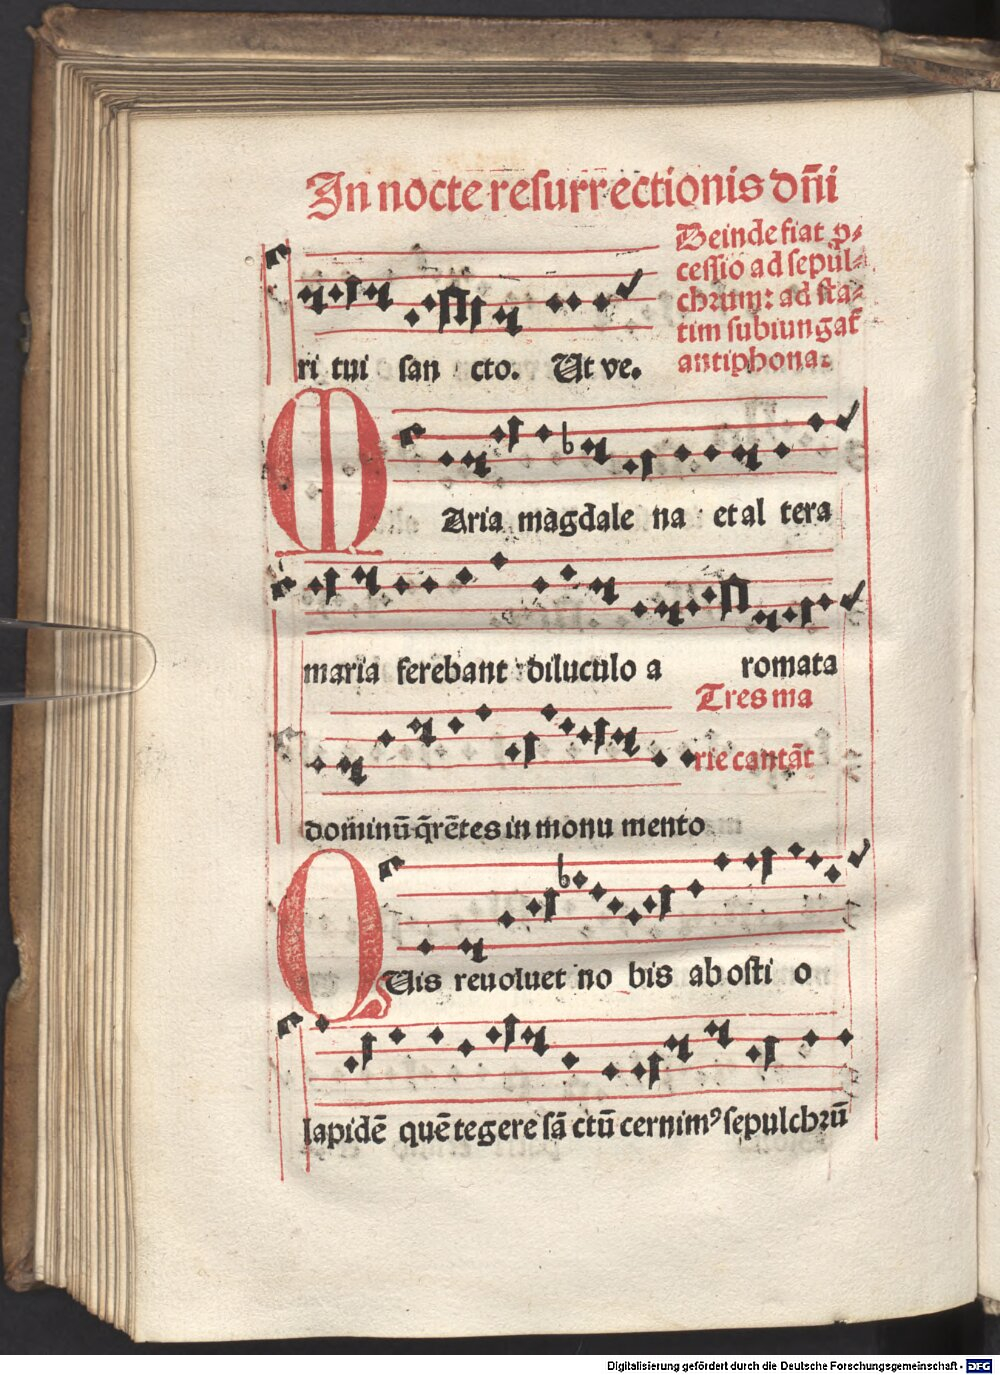 In nocte resurrectionis dn̄i
Deinde fiat p-
cessio ad sepul-
chrum: ad sta-
tim subiungat
antiphona.
ri tui san cto. Ut ve.
MAria magdale na et al tera
maria ferebant diluculo a romata
Tres ma
rie cantāt
dominū q̄rētes in monu mento
QUis reuoluet no bis ab osti o
lapidē quē tegere sā ctū cernimꝰ sepulchrū
Digitalisierung gefördert durch die Deutsche Forschungsgemeinschaft - DFG